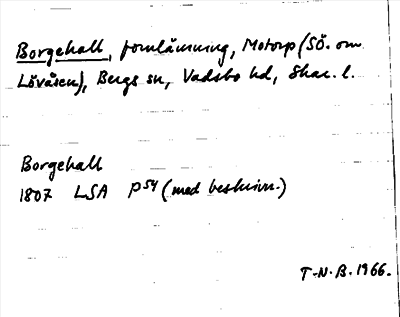 Borgehall, fornlämning, Motorp (SÖ. om
Lövåsen), Bergs sn, Vadsbo hd, Skar. l.
Borgehall
1807 LSA P54 (med beskrivn.)
T.N.B. 1966.